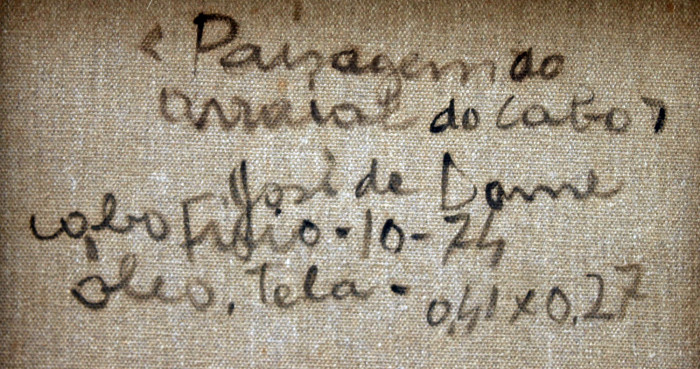 < Paisagem do
arraial do Cabo >
José de Dome
Cabo Frio - 10 - 74
óleo, Tela - 0,41 x 0,27